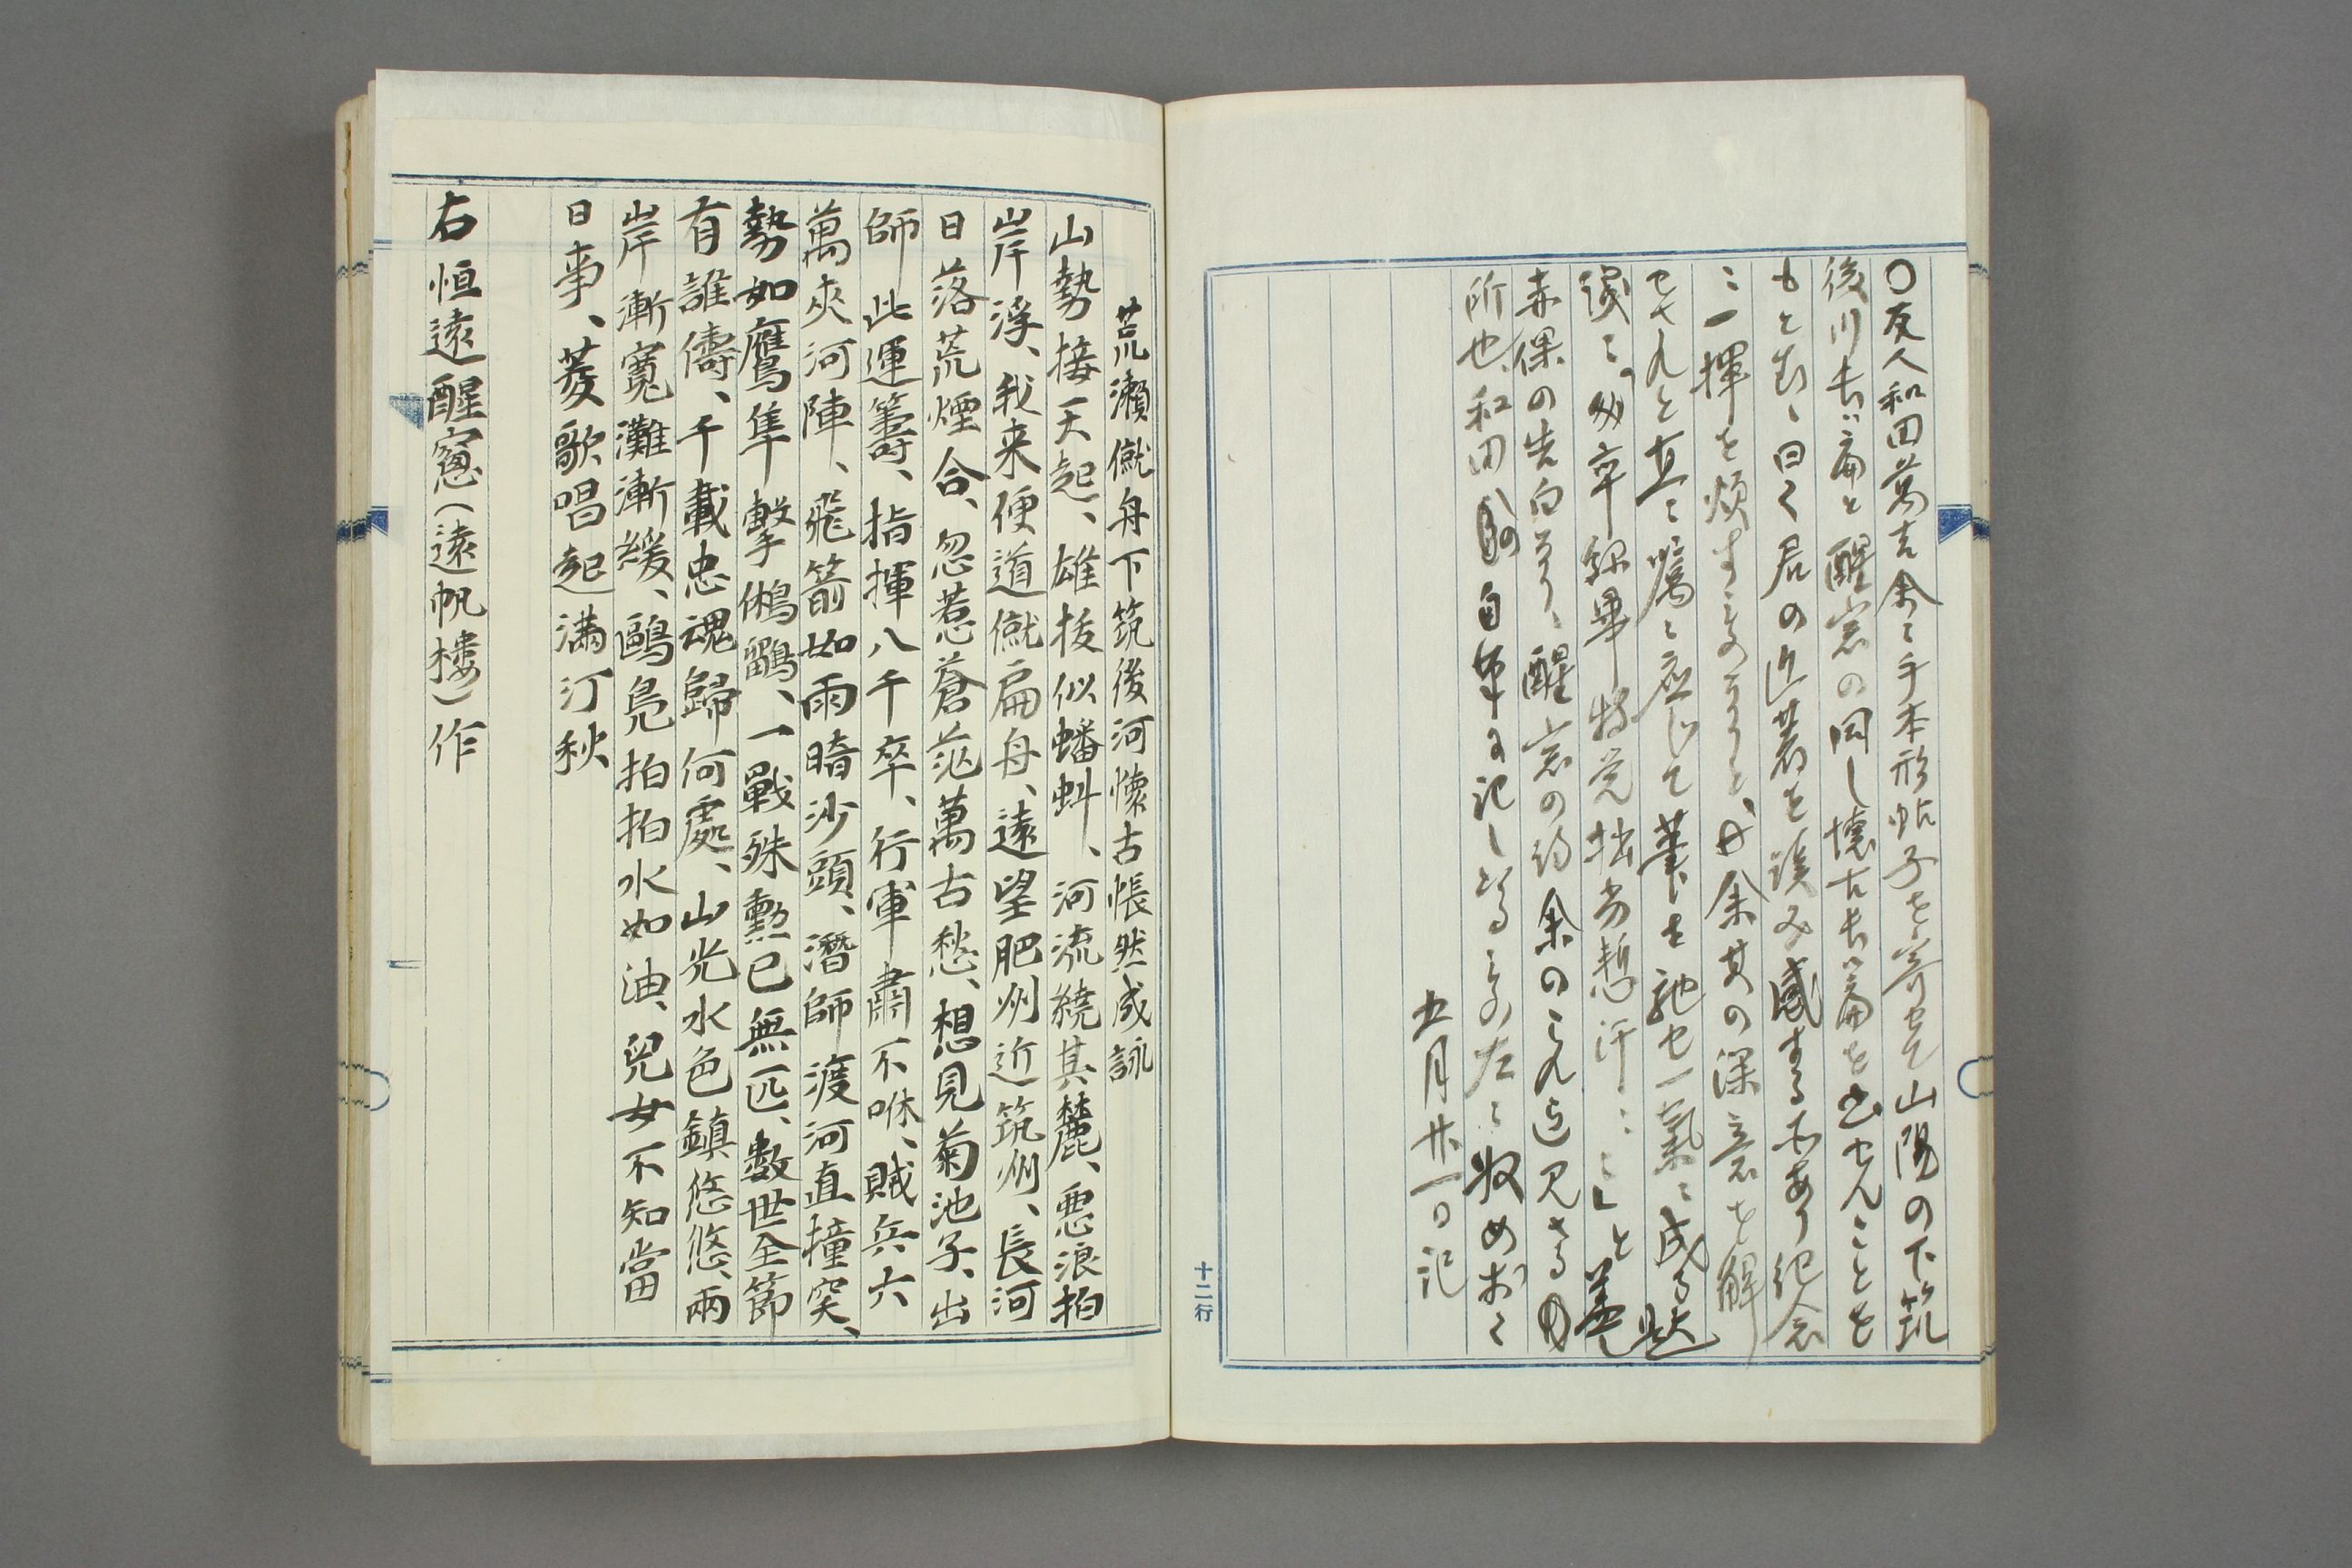 〇友人和田萬吉余に手本形帖子を寄せて山陽の下筑
後川長篇と醒窓の同し懐古長篇を出せんことを
もとむ、曰く君の近著を読み感する所あり紀念
に一揮を煩すものなりと、余其の深意を解
せされと直に嘱に応じて筆を馳せ一氣に成る
赤保の告白なり、醒窓の詩余のこれ迄見さる
所也、和田自筆に記しあるもの左に収めおく
五月廿一日記
十二行
荒瀨僦舟下筑後河懷古悵然成詠
山勢接天起、雄拔似蟠蚪、河流繞其麓、悪浪拍
岸浮、我来便道僦扁舟、遠望肥州近筑州、長河
日落荒煙合、忽惹蒼茫萬古愁、想見菊池子、出
師此運籌、指揮八千卒、行軍肅不咻、賊兵六
萬夾河陣、飛箭如雨暗沙頭、潛師渡河直撞突、
勢如鷹隼擊鵂鶹、一戰殊勲已無匹、數世全節
有誰儔、千載忠魂歸何處、山光水色鎮悠悠、兩
岸漸寬灘漸緩、鷗鳧拍拍水如油、兒女不知當
日事、菱歌唱起滿汀秋
右恒遠醒窓(遠帆樓)作